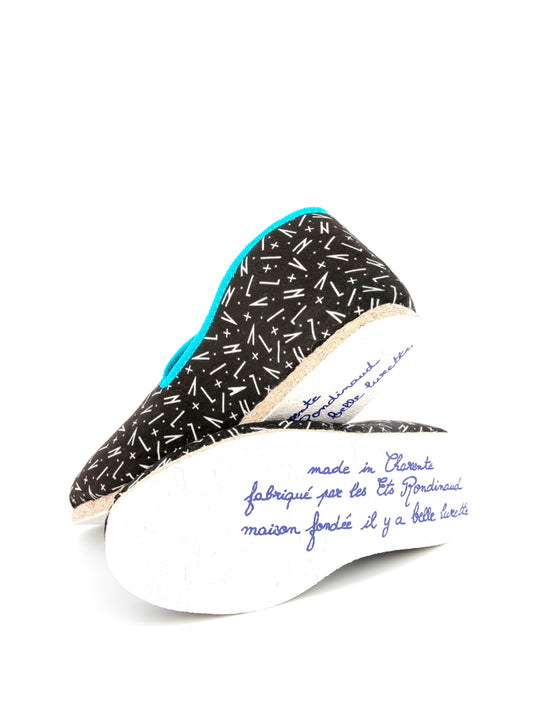 ente
Rondinaud
belle lurette
made in Charente
fabriqué par les Ets Rondinaud
maison fondée il y a belle lurette